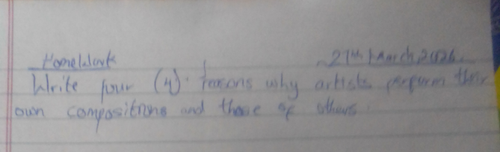 HomeWork 27th March 2026
Write four (4) reasons why artists perform their
own compositions and those of others.